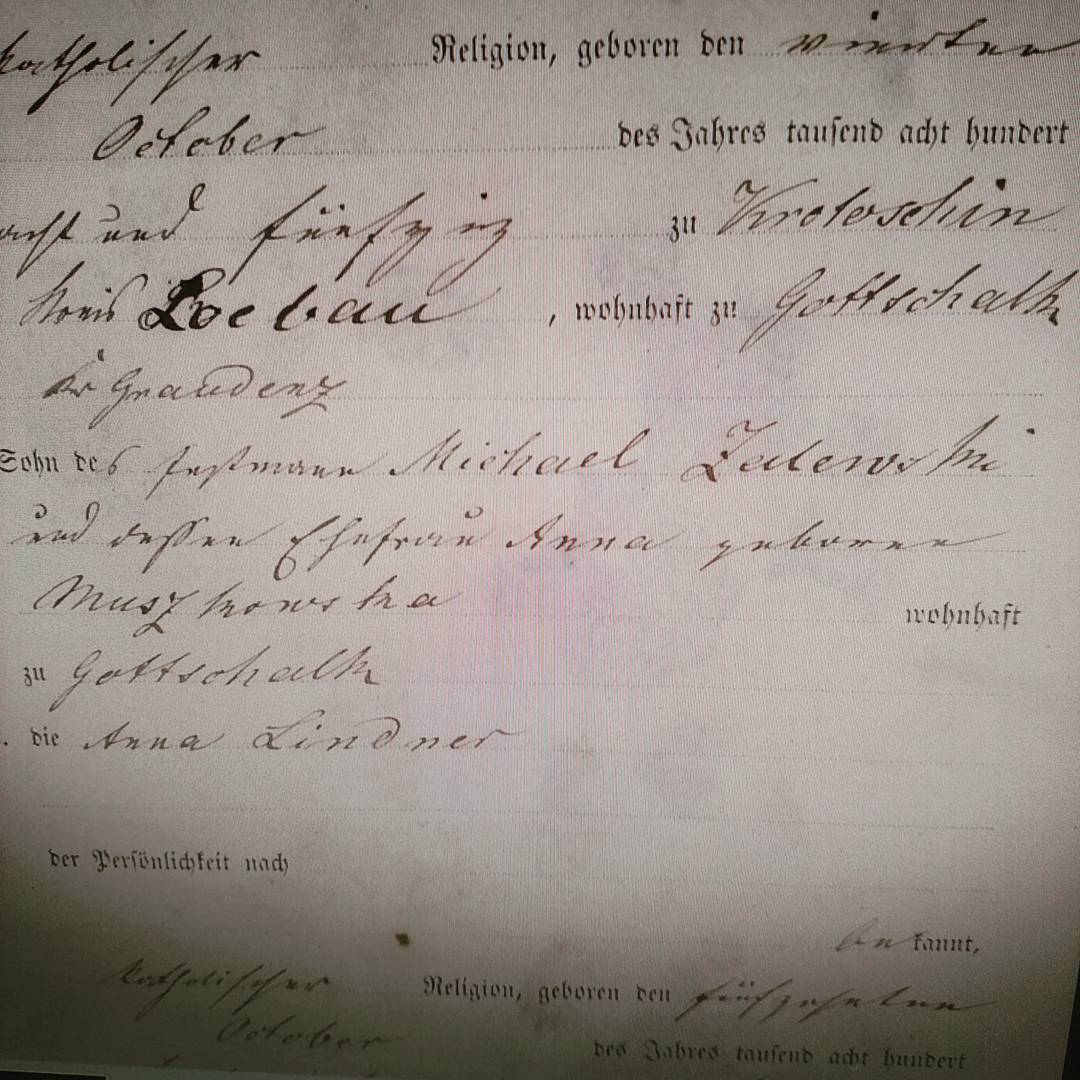 katholischer Religion, geboren den vierten
October des Jahres tausend acht hundert
acht und fünfzig zu Krotoschin
Kreis Loebau, wohnhaft zu Gottschalk
Kr Graudenz
Sohn des Instmann Michael Zalewski
und dessen Ehefrau Anna geboren
Muszkowska wohnhaft
zu Gottschalk
. die Anna Lindner
der Persönlichkeit nach
bekannt,
katholischer Religion, geboren den fünfzehnten
October des Jahres tausend acht hundert